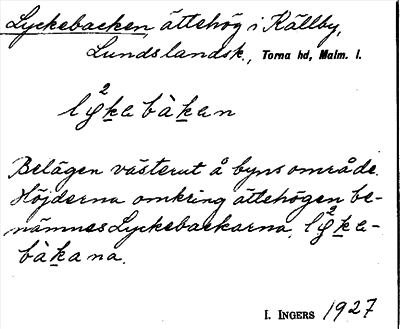 Lyckebacken, ättehög i Källby,
Lundslandsk., Torna hd, Malm. l.
ly²ke bàken
Belägen västerut å byns område.
Höjderna omkring ättehögen be-
nämnes Lyckebackarna, ly²ke-
bàkana.
I. INGERS 1927